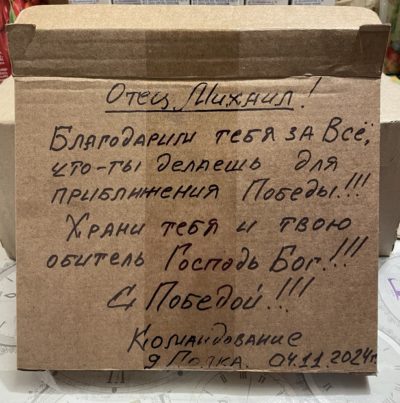 Отец Михаил!
Благодарим тебя за Всё,
что-ты делаешь для
приближения Победы!!!
Храни тебя и твою
обитель Господь Бог!!!
С Победой!!!
Командование
9 Полка. 04.11.2024г.